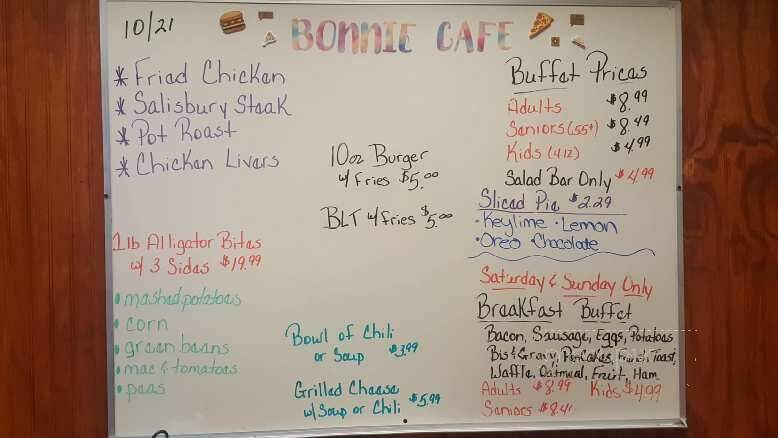 10/21
BONNIE CAFE
* Fried Chicken
* Salisbury Steak
* Pot Roast
* Chicken Livers
1lb Alligator Bites
w/ 3 Sides $19.99
• mashed potatoes
• corn
• green beans
• mac & tomatoes
• peas
10oz Burger
w/ Fries $5.00
BLT w/ fries $5.00
Bowl of Chili
or Soup $3.99
Grilled Cheese
w/ Soup or Chili $5.99
Buffet Prices
Adults $8.99
Seniors (55+) $8.49
Kids (4-12) $4.99
Salad Bar Only $4.99
Sliced Pie $2.29
• Keylime • Lemon
• Oreo • Chocolate
Saturday & Sunday Only
Breakfast Buffet
Bacon, Sausage, Eggs, Potatoes
Bis & Gravy, Pancakes, French Toast,
Waffle, Oatmeal, Fruit, Ham
Adults $8.99 Kids $4.99
Seniors $8.4